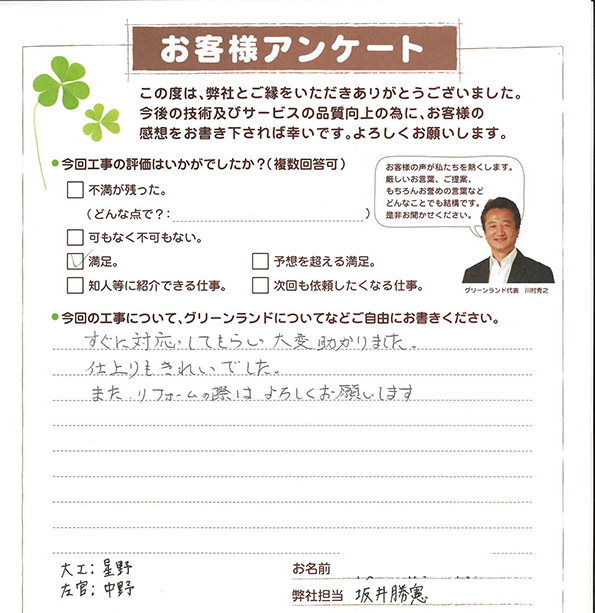 お客様アンケート
この度は、弊社とご縁をいただきありがとうございました。
今後の技術及びサービスの品質向上の為に、お客様の
感想をお書き下されば幸いです。よろしくお願いします。
●今回工事の評価はいかがでしたか?(複数回答可)
お客様の声が私たちを熱くします。
厳しいお言葉、ご提案、
もちろんお誉めの言葉など
どんなことでも結構です。
是非お聞かせください。
グリーンランド代表 川村秀之
不満が残った。
(どんな点で?: )
可もなく不可もない。
満足。 予想を超える満足。
知人等に紹介できる仕事。 次回も依頼したくなる仕事。
●今回の工事について、グリーンランドについてなどご自由にお書きください。
すぐに対応してもらい大変助かりました。
仕上りもきれいでした。
また、リフォームの際はよろしくお願いします
大工:星野
左官:中野
お名前
弊社担当 坂井勝憲